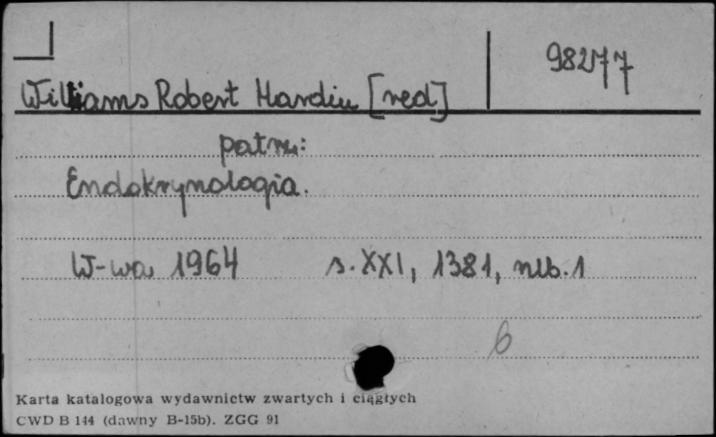 98277
Williams Robert Hardin [red]
patrz:
Endokrynologia.
W-wa 1964 s. XXI, 1381, nlb. 1
6
Karta katalogowa wydawnictw zwartych i ciągłych
CWD B 144 (dawny B-15b). ZGG 91